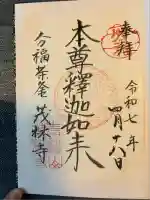 奉拝
令和七年
四月十八日
本尊釋迦如来
分福茶釜
茂林寺